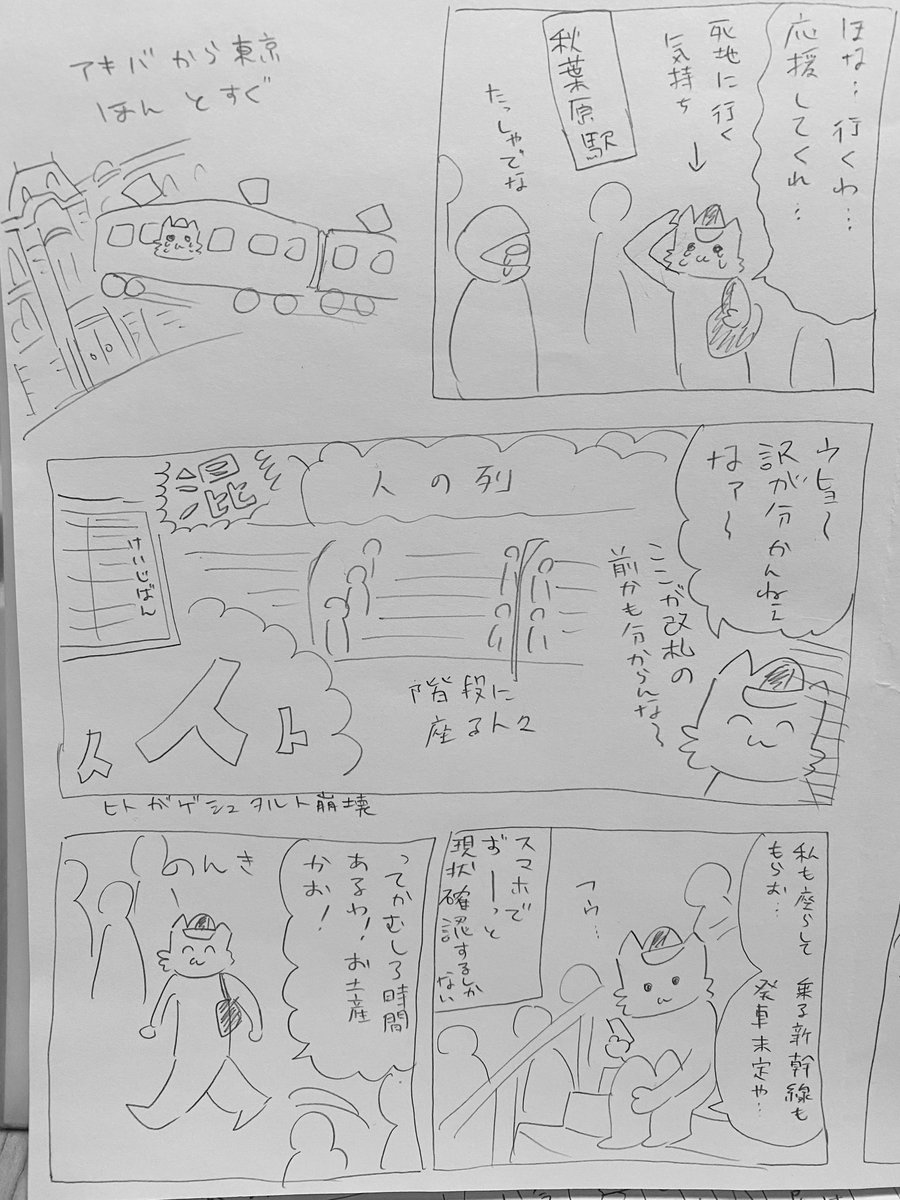 ほな…行くわ…
応援してくれ…
死地に行く
気持ち
秋葉原駅
たっしゃでな
アキバから東京
ほんとすぐ
ウヒョ〜
訳が分かんねェ
なァ〜
ここが改札の
前かも分からんな〜
人の列
混
けいじばん
階段に
座る人々
人
人
ト
ヒトがゲシュタルト崩壊
私も座らして
もらお…
乗る新幹線も
発車未定や…
フゥ…
スマホで
ずーっと
現状確認するしか
ない
ってかむしろ時間
あるわ!お土産
かお!
のんき